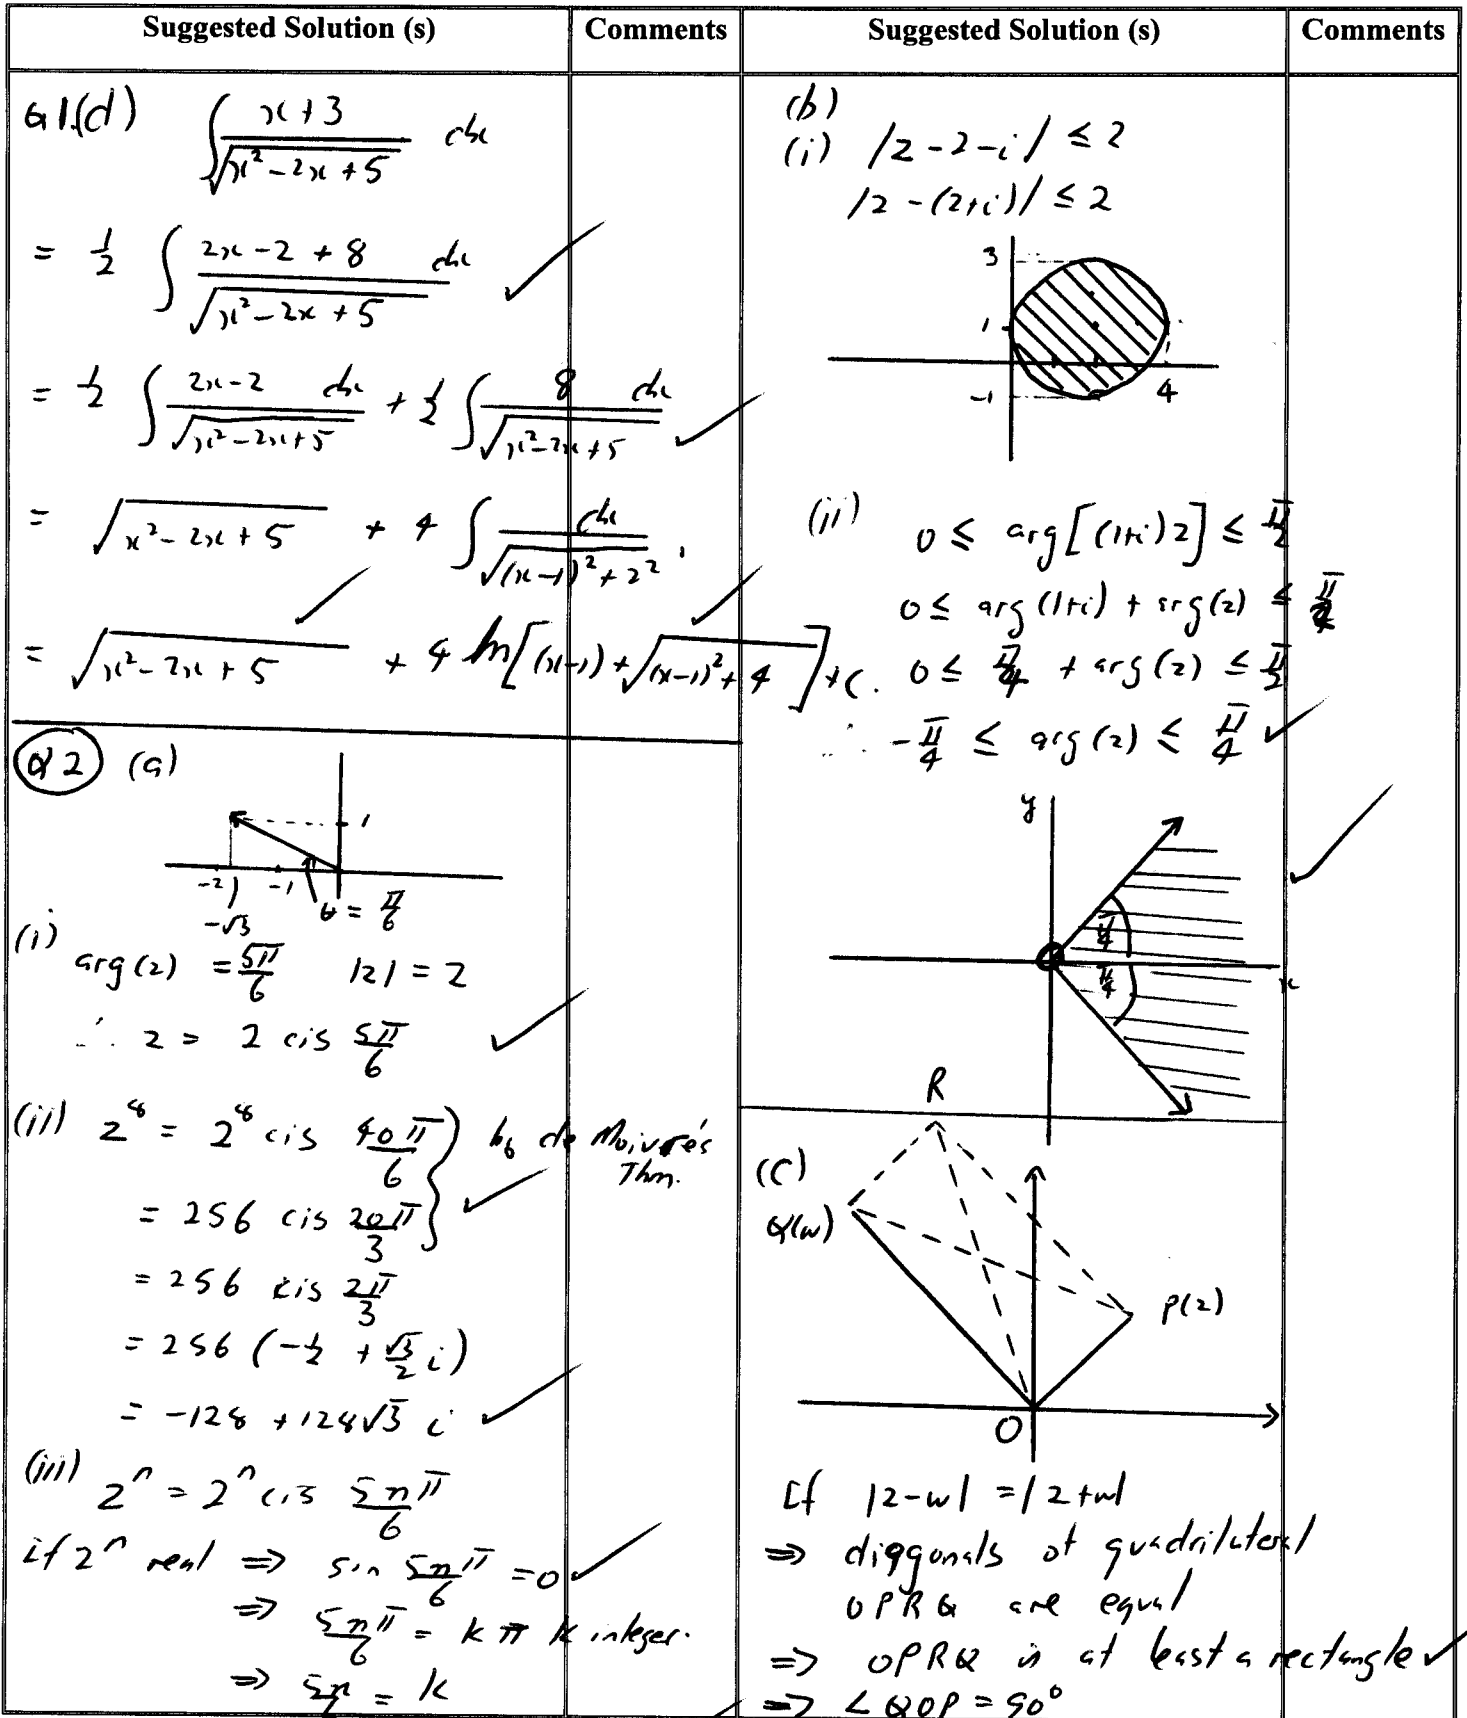 Suggested Solution (s)
Comments
Suggested Solution (s)
Comments
Q1.(d) ∫ x+3 / √(x²-2x+5) dx
= ½ ∫ 2x-2+8 / √(x²-2x+5) dx ✓
= ½ ∫ 2x-2 / √(x²-2x+5) dx + ½ ∫ 8 / √(x²-2x+5) dx ✓
= √(x²-2x+5) + 4 ∫ dx / √((x-1)²+2²) .
= √(x²-2x+5) ✓ + 4 ln[(x-1)+√((x-1)²+4)] ✓ +C.
Q2 (a)
1
-2 -1
-√3
θ = π/6
(i) arg(z) = 5π/6 |z| = 2
∴ z = 2 cis 5π/6 ✓
(ii) z⁸ = 2⁸ cis 40π/6 } by de Moivre's Thm.
= 256 cis 20π/3 ✓
= 256 cis 2π/3
= 256 (-½ + √3/2 i)
= -128 + 128√3 i ✓
(iii) zⁿ = 2ⁿ cis 5nπ/6
if zⁿ real ⇒ sin 5nπ/6 = 0 ✓
⇒ 5nπ/6 = kπ k integer.
⇒ 5n = k
(b)
(i) |z-2-i| ≤ 2
|z-(2+i)| ≤ 2
3
1
-1
4
(ii) 0 ≤ arg[(1+i)z] ≤ π/2
0 ≤ arg(1+i) + arg(z) ≤ π/2
0 ≤ π/4 + arg(z) ≤ π/2
∴ -π/4 ≤ arg(z) ≤ π/4 ✓
y
π/4
π/4
x
✓
(c)
R
Q(w)
P(z)
O
If |z-w| = |z+w|
⇒ diagonals of quadrilateral
OPRQ are equal
⇒ OPRQ is at least a rectangle ✓
⇒ ∠QOP = 90°